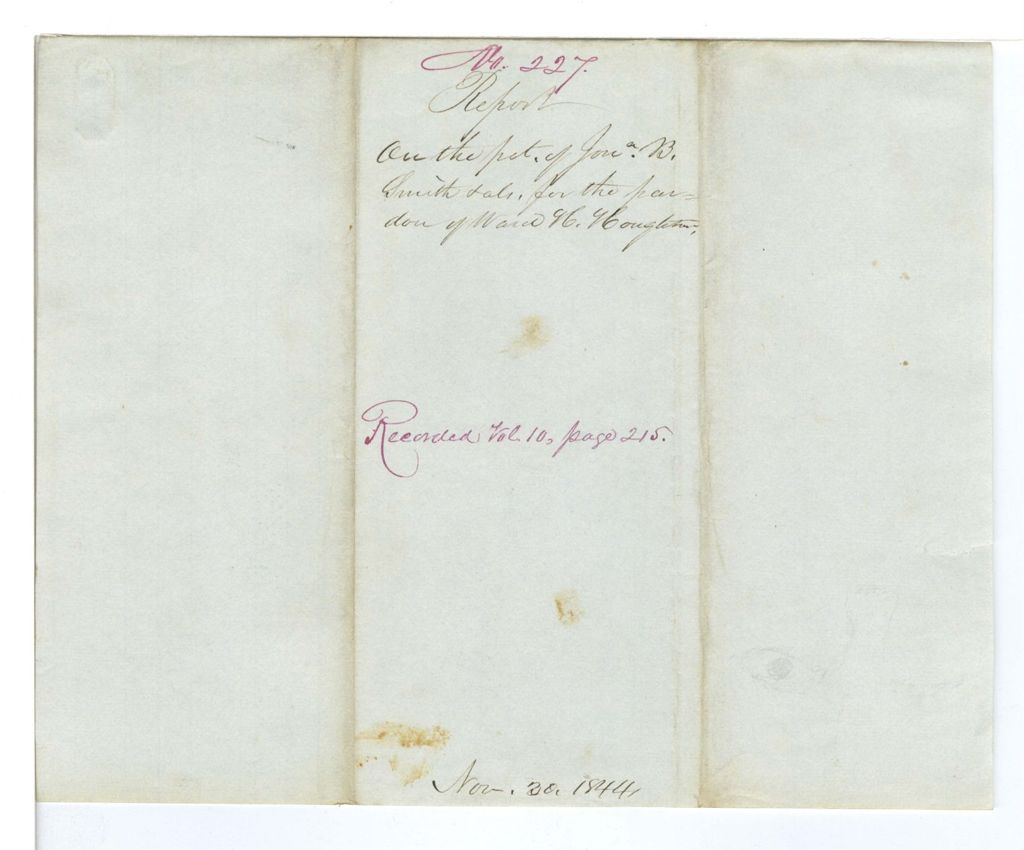 No. 227.
Report
On the pet. of Jona. B.
Smith & als. for the par=
don of Ward H. Houghton.
Recorded Vol. 10, page 215.
Nov. 30. 1844.